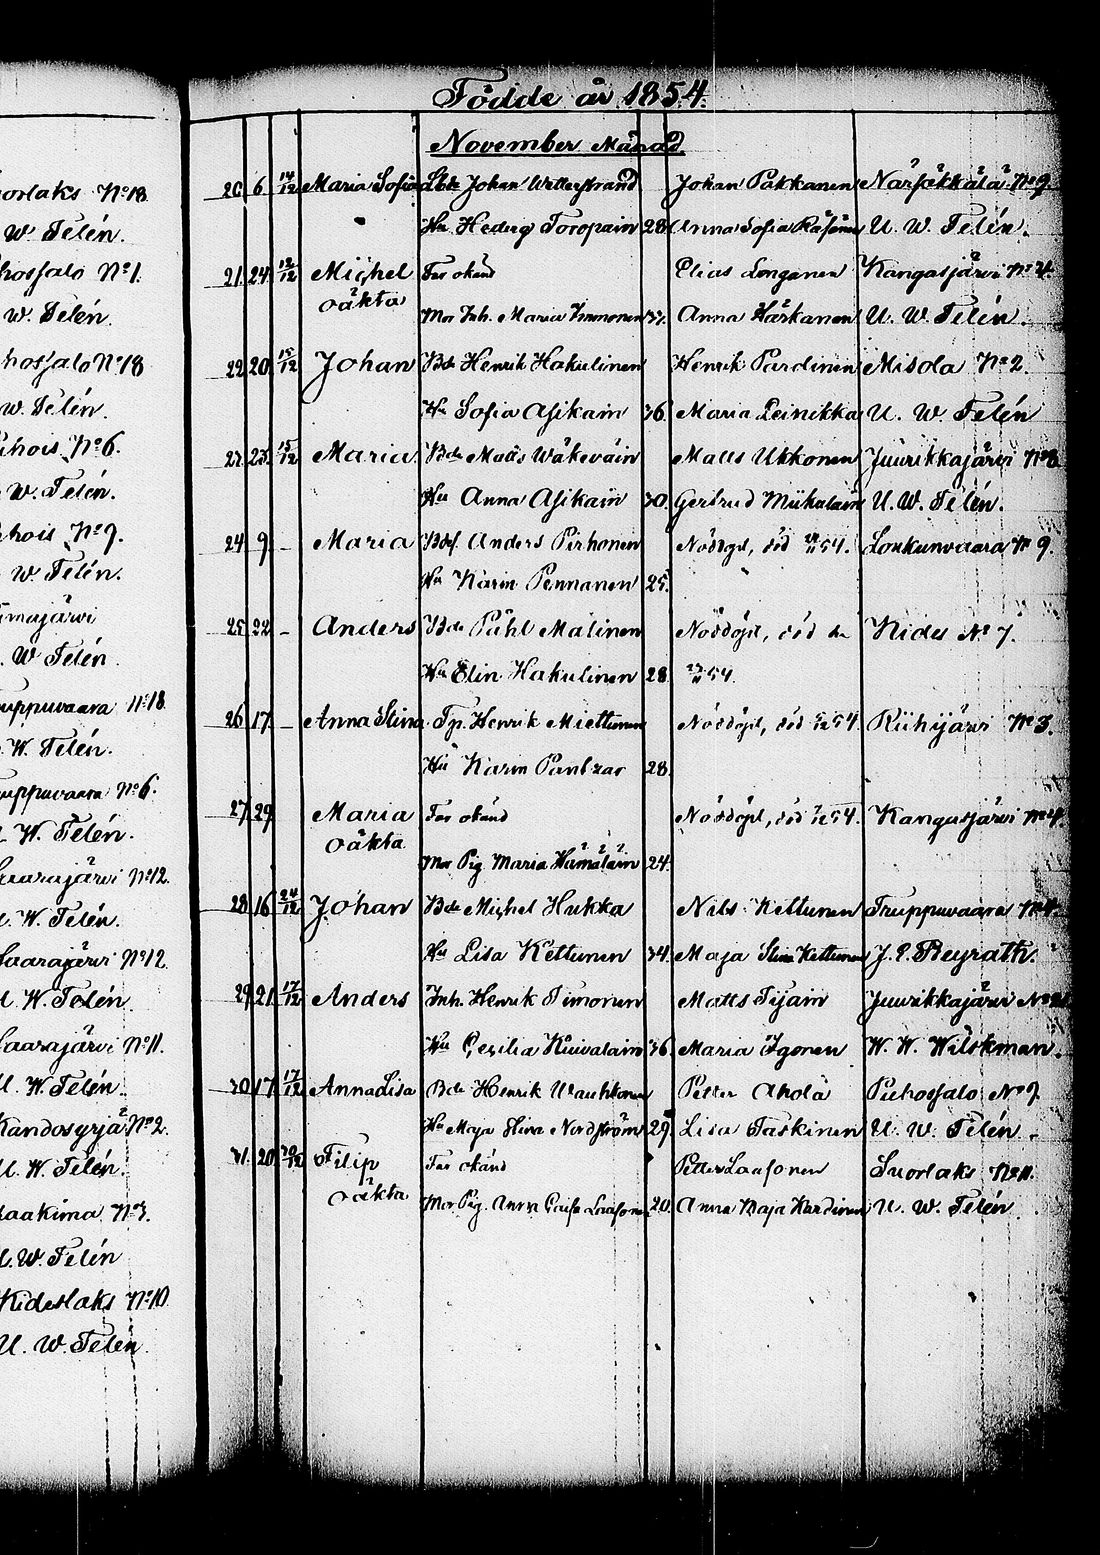 uorlaks No 18
W. Telén.
hosfalo No 1.
W. Telén.
hosfalo No 18
W. Telén.
hois No 6.
W. Telén.
hois No 9.
W. Telén.
imajärvi
W Telén.
uppuvaara No 18
W. Telén.
uppuvaara No 6.
W. Telén.
aarajärvi No 12.
W. Telén.
aarajärvi No 12
U. W. Telén.
aarajärvi No 11.
U. W. Telén.
Kandosyrjä No 2.
U. W. Telén.
aakima No 3.
U. W. Telén
Kideslaks No 10
U. W. Telén.
Födde år 1854.
November Månad
20. 6. 14/12 Maria Sofia Johan Wetterstrand Johan Pakkanen Närsäkkälä No 9.
Hu Hedvig Toropain 28 Anna Sofia Räsänen U. W. Telén.
21. 24. 12/12 Michel Far okänd Elias Longanen Kangasjärvi No 4.
oäkta
Mor Inh. Maria Immonen 37. Anna Härkänen U. W. Telén.
22 20 15/12 Johan Bde Henrik Hakulinen Henrik Pardinen Misola No 2.
Hu Sofia Asikain 36 Maria Leinikka U. W. Telén
23. 23. 15/12 Maria Bde Matts Wäkeväin Matts Ukkonen Juurikkajärvi No 8
Hu Anna Asikain 30. Gertrud Mikalain U. W. Telén.
24 9. - Maria Anders Pirhonen Nöddöpt, död 54. Loukunvaara No 9.
Hu Karin Pennanen 25.
25. 22 - Anders Bde Påhl Malinen Nöddöpt, död Kides No 7.
Hu Elin Hakulinen 28 54.
26 17. - Anna Stina Tp. Henrik Miettinen Nöddöpt, död 54. Riihijärvi No 3.
Hu Karin Pantzar 28.
27. 29. Maria Far okänd Nöddöpt, död 54. Kangasjärvi No 4.
oäkta
Mor Pig. Maria Hämäläin 24.
28 16 24/12 Johan Bde Michel Hukka Nils Kettunen Truppuvaara No 4.
Hu Lisa Kettunen 34. Maja Stina Kettunen J. E. Beyrath.
29. 21. 17/12 Anders Inh. Henrik Timonen Matts Tijain Juurikkajärvi
Hu Cecilia Kuivalain 36. Maria Igonen W. W. Wilskman.
30 17. 17/12 Anna Lisa Bde Henrik Wauhkonen Petter Ahola Puhosfalo No 7
Hu Maja Stina Nordström 29. Lisa Taskinen U. W. Telén.
31. 20 Filip Far okänd Petter Laasonen Suorlaks No 11.
oäkta
Mor Pig. Anna Caisa Laasonen 20. Anna Maja Kardinen U. W. Telén